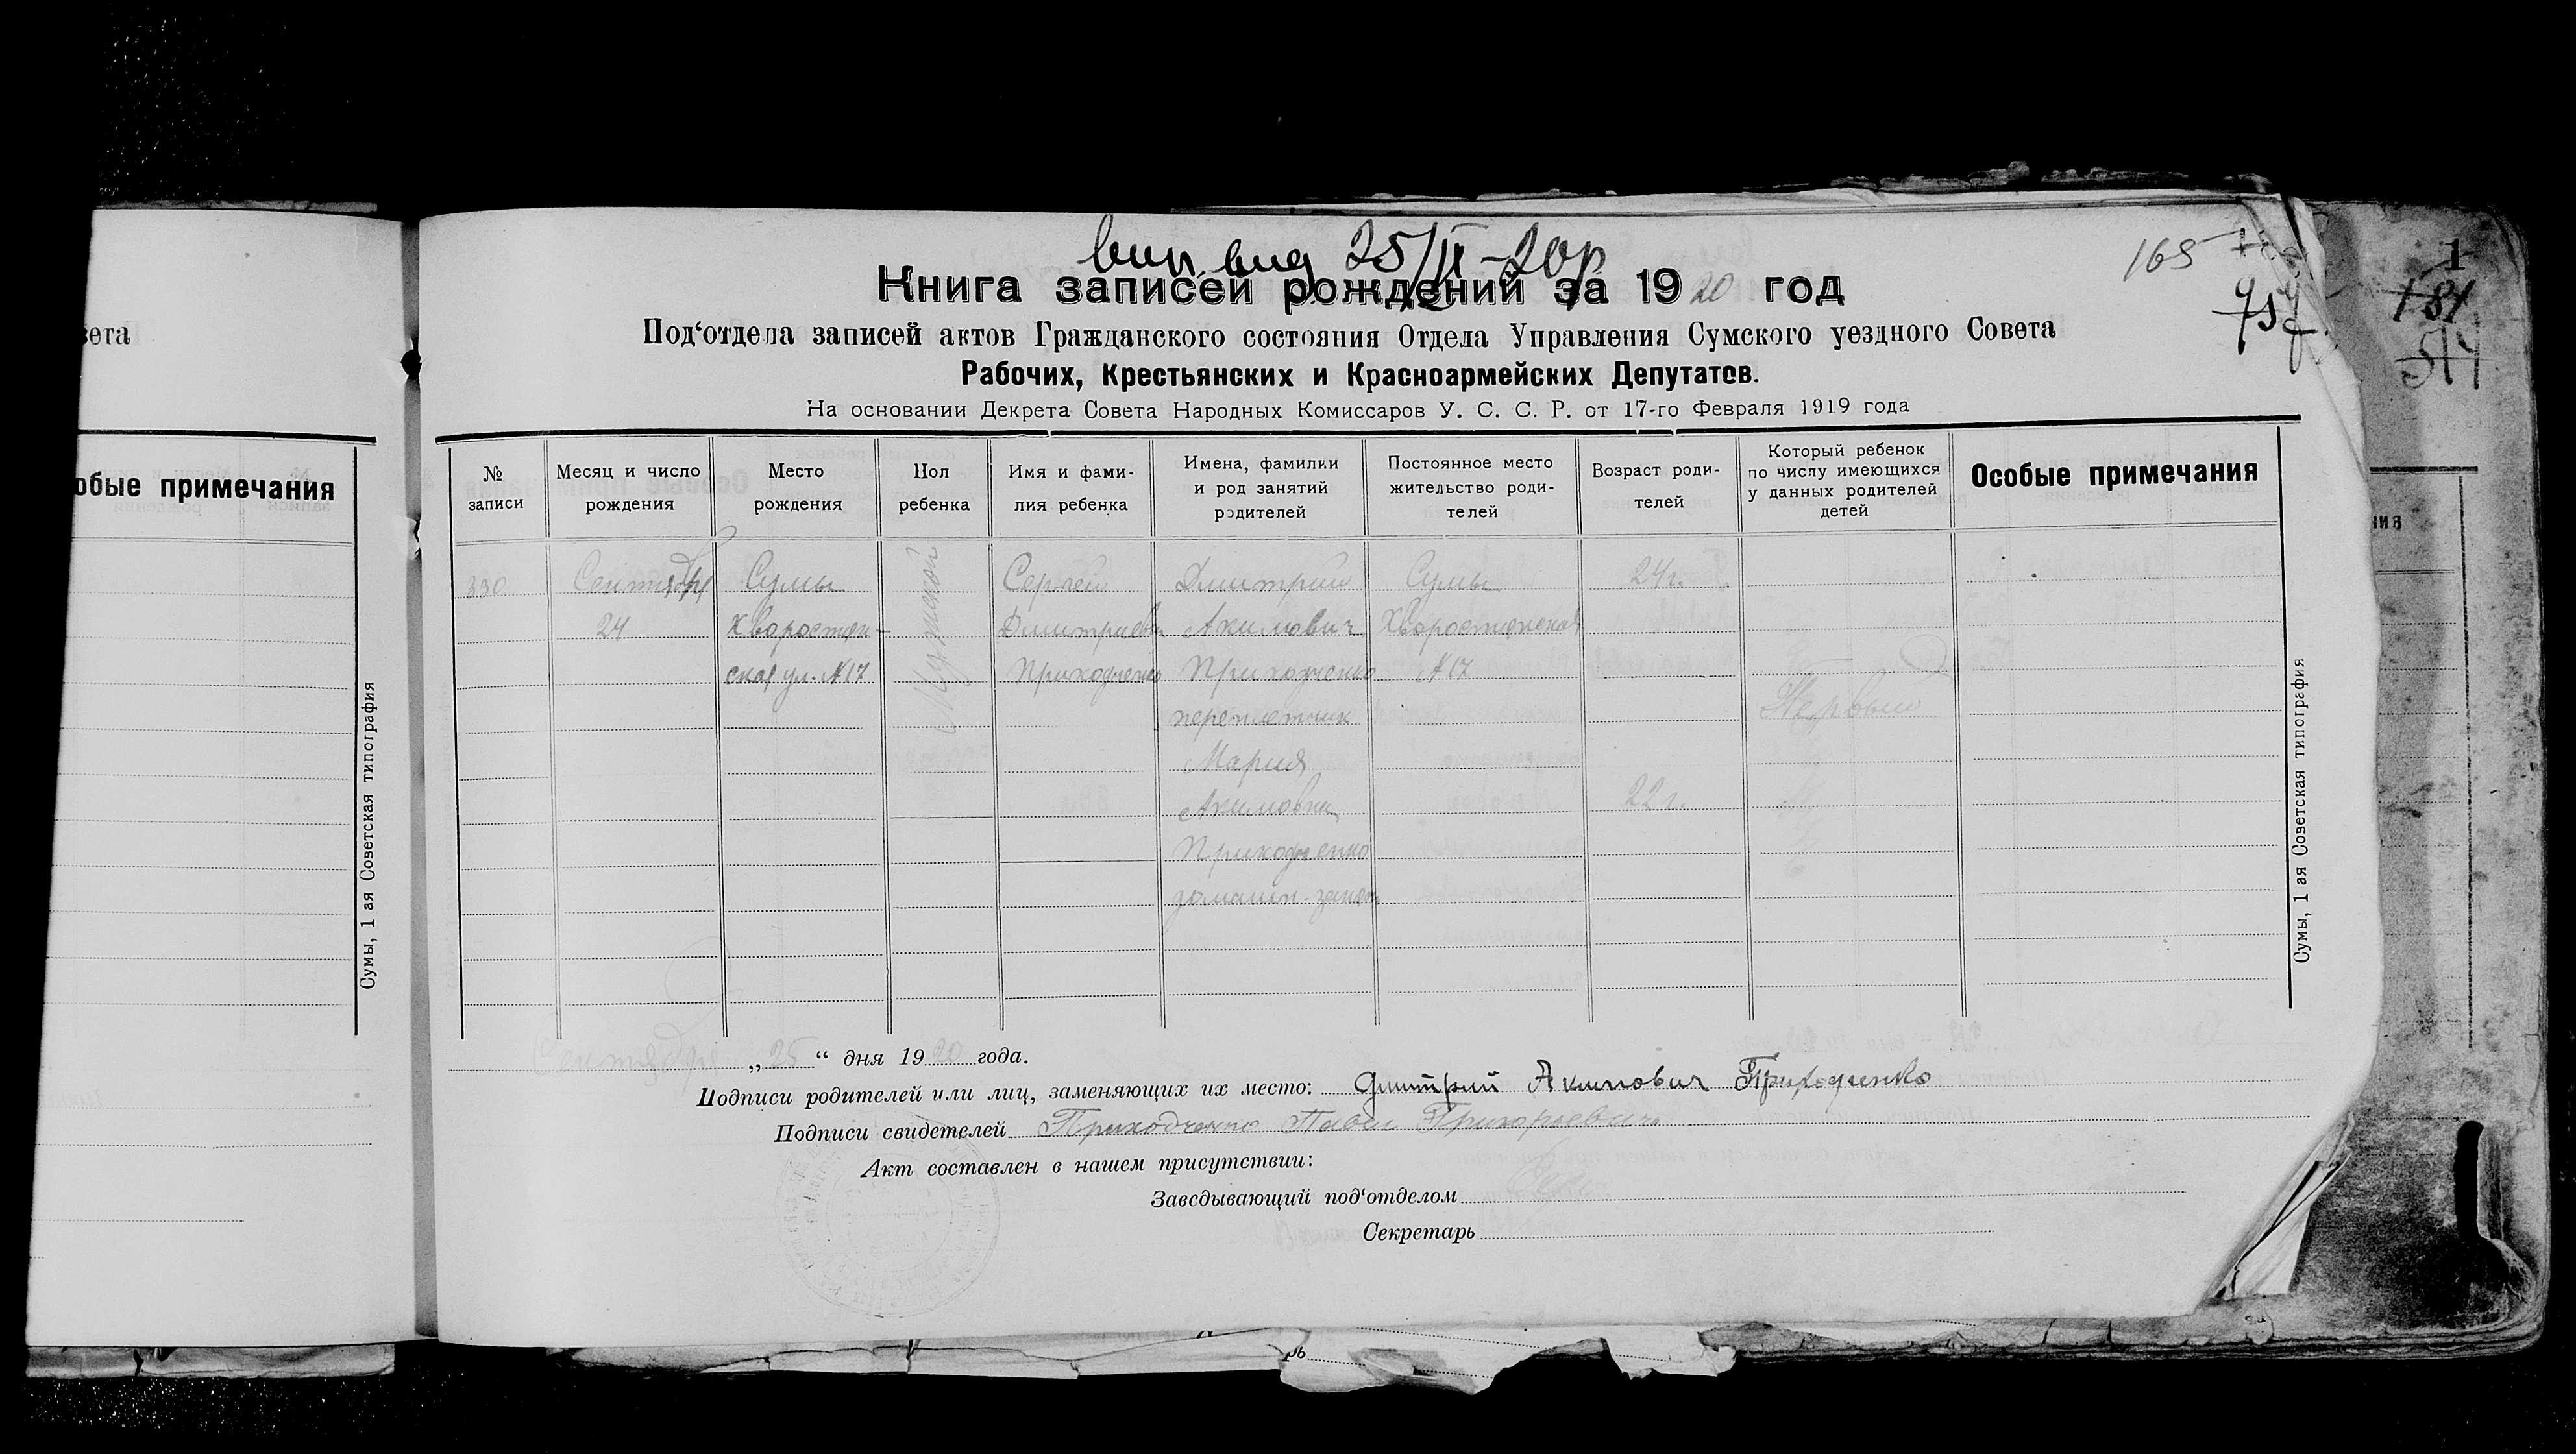 165
25/IX-20р
Книга записей рождений за 1920 год
Под‘отдела записей актов Гражданского состояния Отдела Управления Сумского уездного Совета
Рабочих, Крестьянских и Красноармейских Депутатов.
На основании Декрета Совета Народных Комиссаров У. С. С. Р. от 17-го Февраля 1919 года
№ записи
Месяц и число рождения
Место рождения
Пол ребенка
Имя и фами-
лия ребенка
Имена, фамилии
и род занятий
родителей
Постоянное место
жительство роди-
телей
Возраст роди-
телей
Который ребенок
по числу имеющихся
у данных родителей
детей
Особые примечания
330
Сентября
24
Сумы
Хворостян-
ская ул. №17
Мужской
Сергей
Дмитриевич
Приходченко
Дмитрий
Акимович
Приходченко
переплетчик
Мария
Акимовна
Приходченко
домашн. занят.
Сумы
Хворостянская
№17
24 г.
22 г.
Первый
Сентября „25“ дня 1920 года.
Подписи родителей или лиц, заменяющих их место: Дмитрий Акимович Приходченко
Подписи свидетелей Приходченко Павел Григорьевичъ
Акт составлен в нашем присутствии:
Заведывающий под‘отделом
Секретарь
Сумы, 1 ая Советская типография
вета
обые примечания
Сумы, 1 ая Советская типография
1
181
514
ния